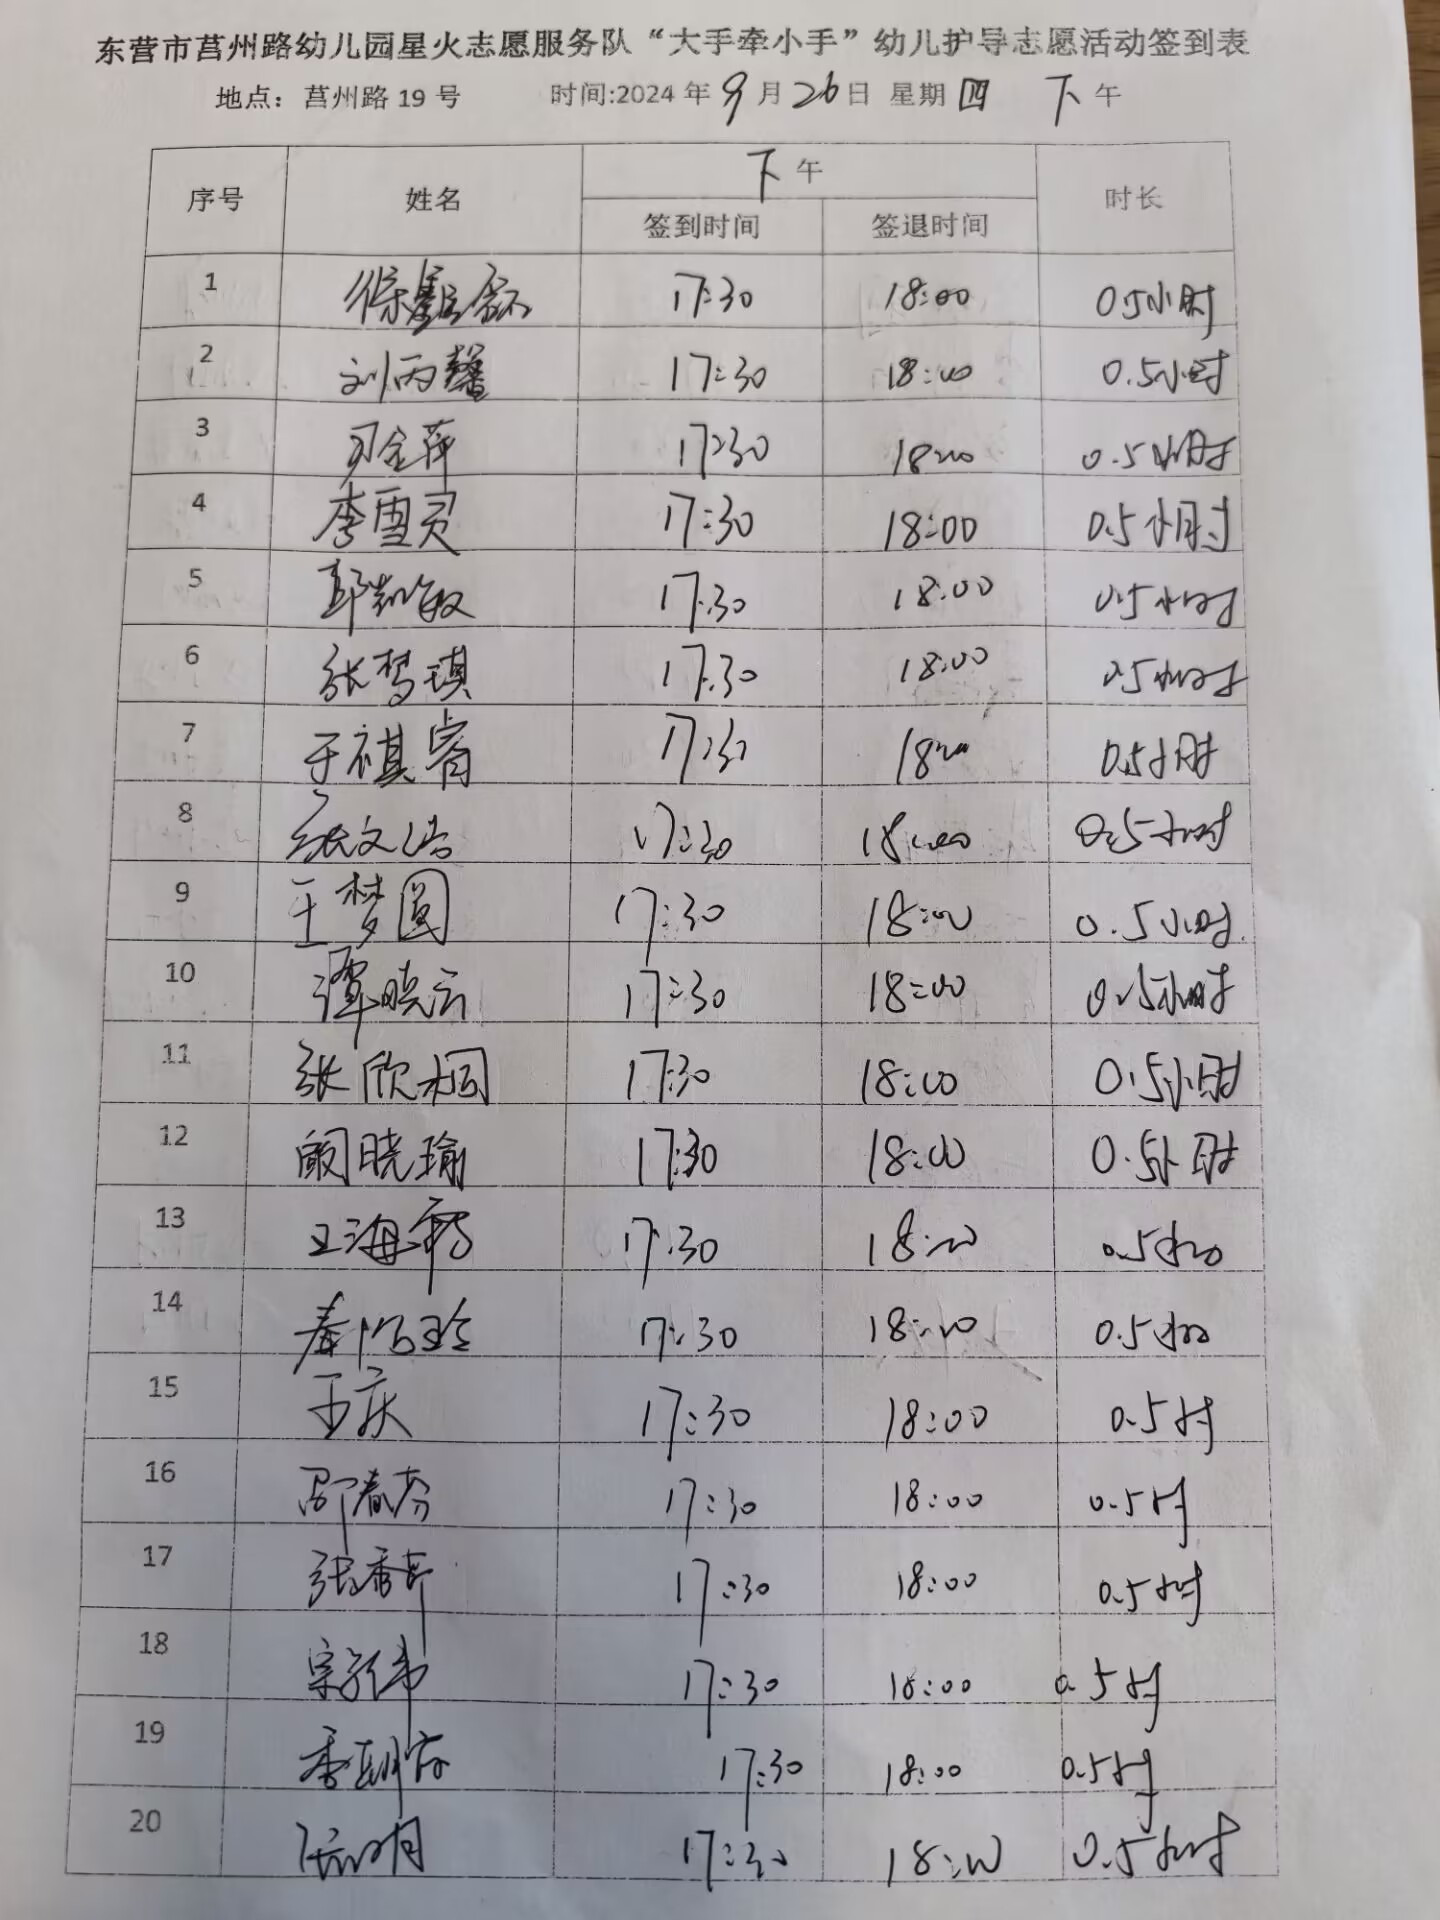 东营市莒州路幼儿园星火志愿服务队“大手牵小手”幼儿护导志愿活动签到表
地点：莒州路 19 号 时间:2024 年 9 月 26 日 星期 四 下 午
序号 姓名 下 午 时长
签到时间 签退时间
1 徐 17:30 18:00 0.5小时
2 刘丙馨 17:30 18:00 0.5小时
3 金萍 17:30 18:00 0.5小时
4 李雪灵 17:30 18:00 0.5小时
5 敏 17.30 18.00 0.5小时
6 张梦琪 17.30 18.00 0.5小时
7 于祺睿 17:30 18:00 0.5小时
8 张文洁 17:30 18:00 0.5小时
9 王梦圆 17:30 18:00 0.5小时.
10 谭晓云 17:30 18:00 0.5小时
11 张欣桐 17:30 18:00 0.5小时
12 阚晓瑜 17:30 18:00 0.5小时
13 王海 17:30 18:00 0.5小时
14 秦 玲 17:30 18:00 0.5小时
15 王庆 17:30 18:00 0.5小时
16 邵春芬 17:30 18:00 0.5小时
17 张秀芹 17:30 18:00 0.5小时
18 宗 伟 17:30 18:00 0.5小时
19 17:30 18:00 0.5小时
20 17:30 18:00 0.5小时